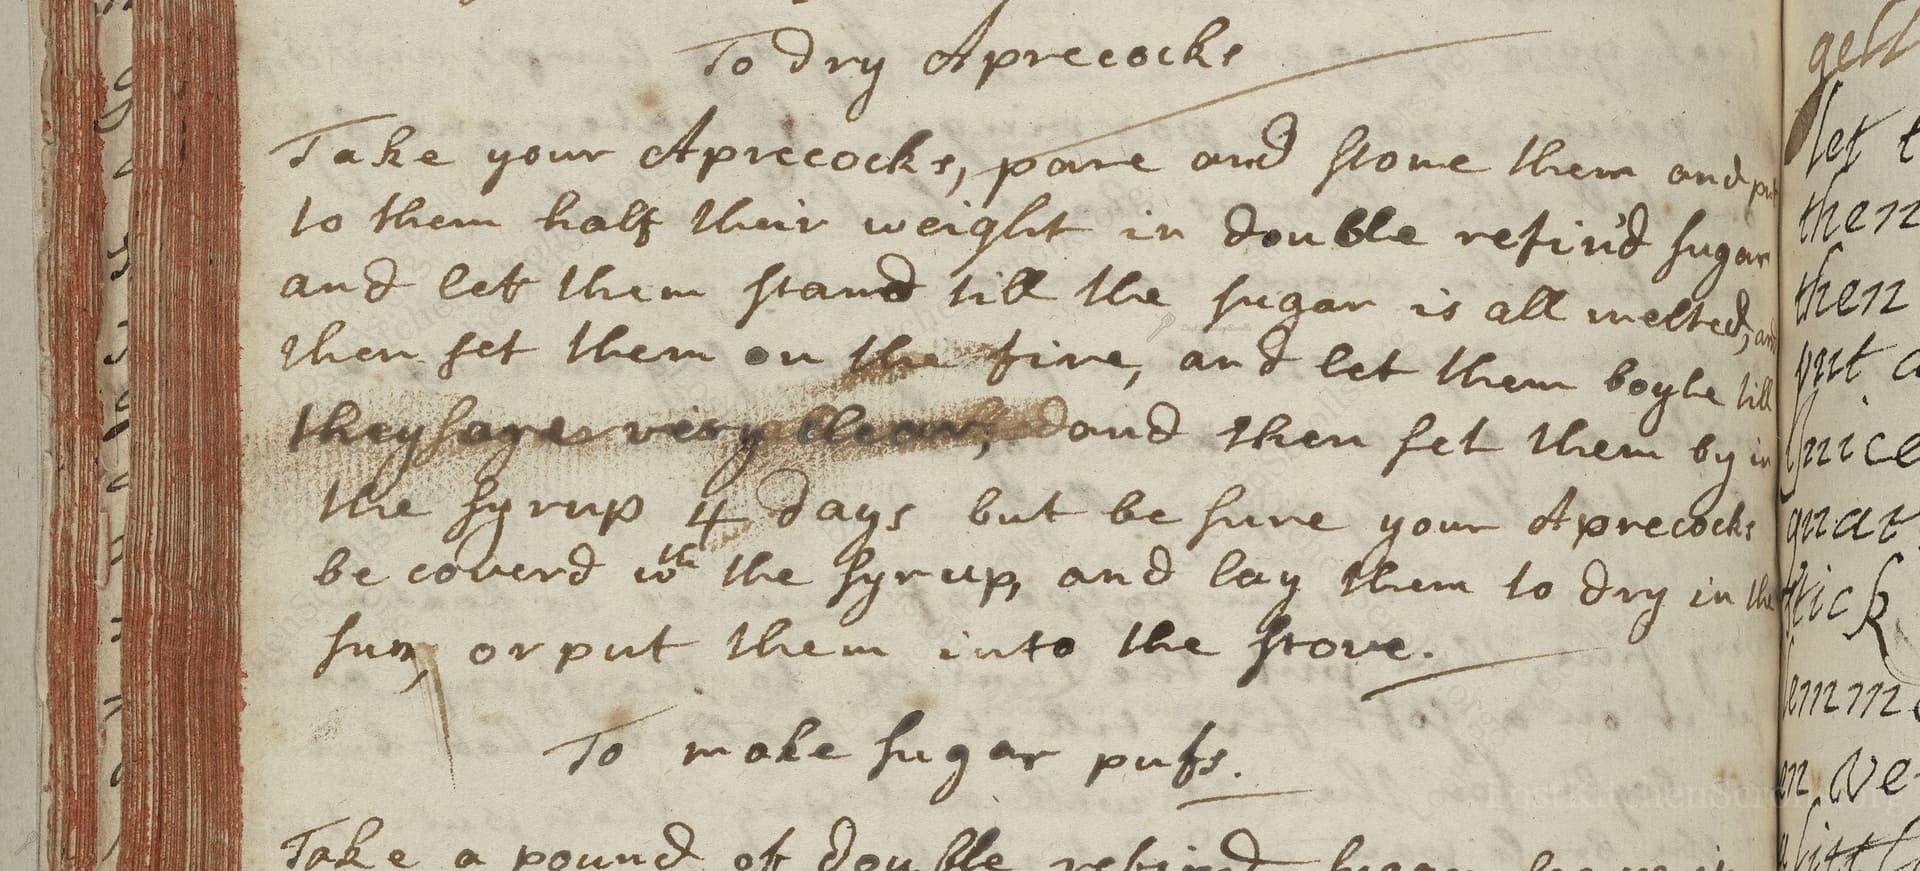 To dry Aprecocks
Take your Aprecocks, pare and stone them and put
to them half their weight in double refin'd sugar
and let them stand till the sugar is all melted, and
then set them on the fire, and let them boyle till
they are very clear, and then set them by in
the syrup 4 days but be sure your Aprecocks
be coverd wth the syrup, and lay them to dry in the
sun, or put them into the stove.
To make sugar pufs.
Take a pound of double refind sugar
let
then
then
put
quar
stick